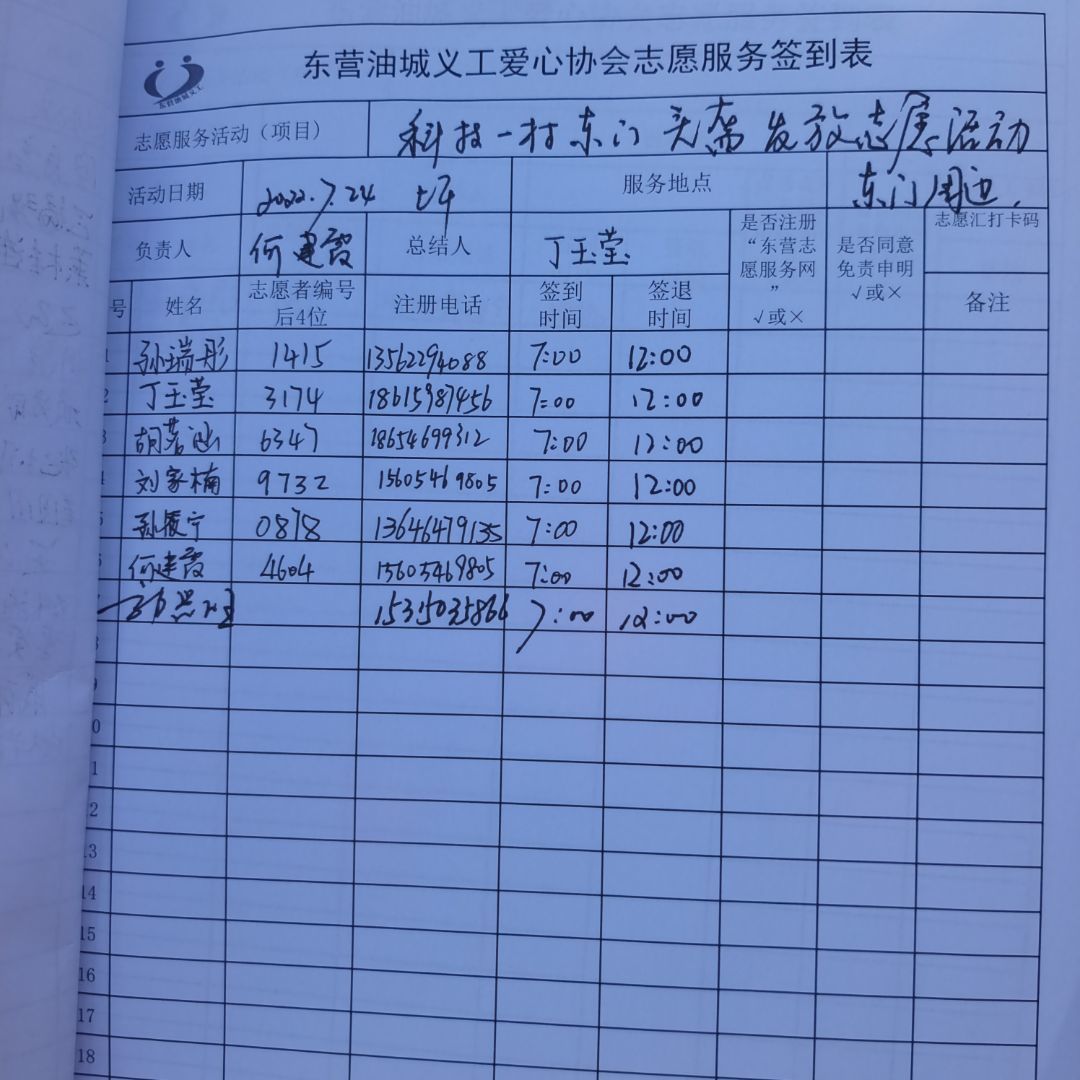 东营油城义工爱心协会志愿服务签到表
东营油城义工
志愿服务活动（项目） 科技一村东门 发放志愿活动
活动日期 2022.7.24 服务地点 东门周边.
负责人 何建霞 总结人 丁玉莹 是否注册“东营志愿服务网” √或× 是否同意免责申明 √或× 志愿汇打卡码
号 姓名 志愿者编号后4位 注册电话 签到时间 签退时间 备注
1 孙瑞彤 1415 13562294088 7:00 12:00
2 丁玉莹 3174 18615987456 7:00 12:00
3 胡茗涵 6347 18654699312 7:00 12:00
4 刘家楠 9732 15605469805 7:00 12:00
5 孙宁 0878 13646479135 7:00 12:00
6 何建霞 4604 15605469805 7:00 12:00
15315035866 7:00 12:00
8
9
0
1
2
13
14
15
16
17
18